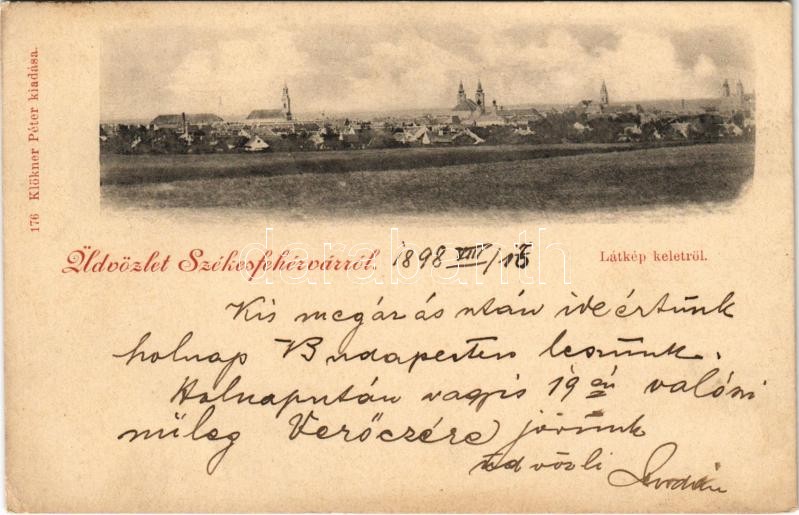 176 Klökner Péter kiadása.
Üdvözlet Székesfehérvárról. 1898 VIII/15
Látkép keletről.
darabanth
Kis megázás után ideértünk
holnap Budapesten leszünk.
Holnapután vagyis 19 én valószi
nüleg Verőczére jövünk
üdvözli